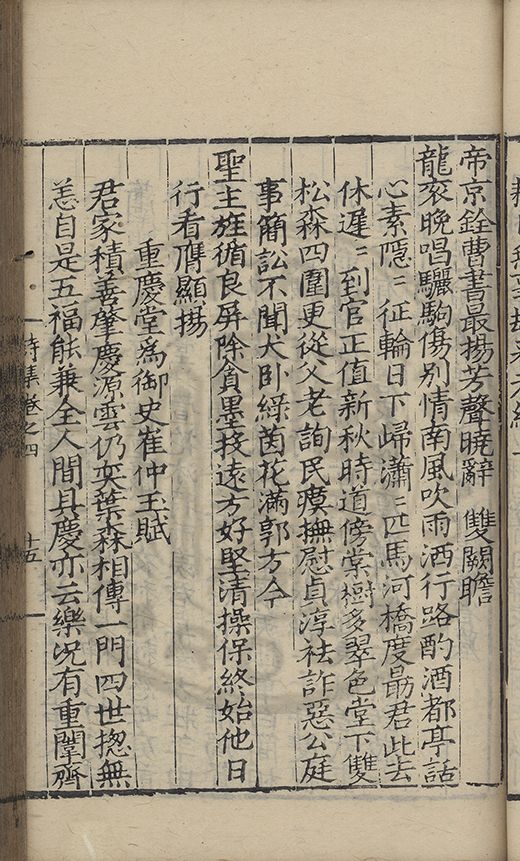 帝京銓曹書最揚芳聲曉辭　雙闕瞻
龍衮晚唱驪駒傷別情南風吹雨洒行路酌酒都亭話
心素隱〻征輪日下歸瀟〻匹馬河橋度勗君此去
休遲〻到官正值新秋時道傍棠樹多翠色堂下雙
松森四圍更從父老詢民瘼撫慰貞淳袪詐惡公庭
事簡訟不聞犬臥綠茵花滿郭方今
聖主旌循良屏除貪墨投遠方好堅清操保終始他日
行看膺顯揚
重慶堂爲御史崔仲玉賦
君家積善肇慶源雲仍奕葉森相傳一門四世揔無
恙自是五福能兼全人間具慶亦云樂況有重闈齊
詩集卷之四
十五